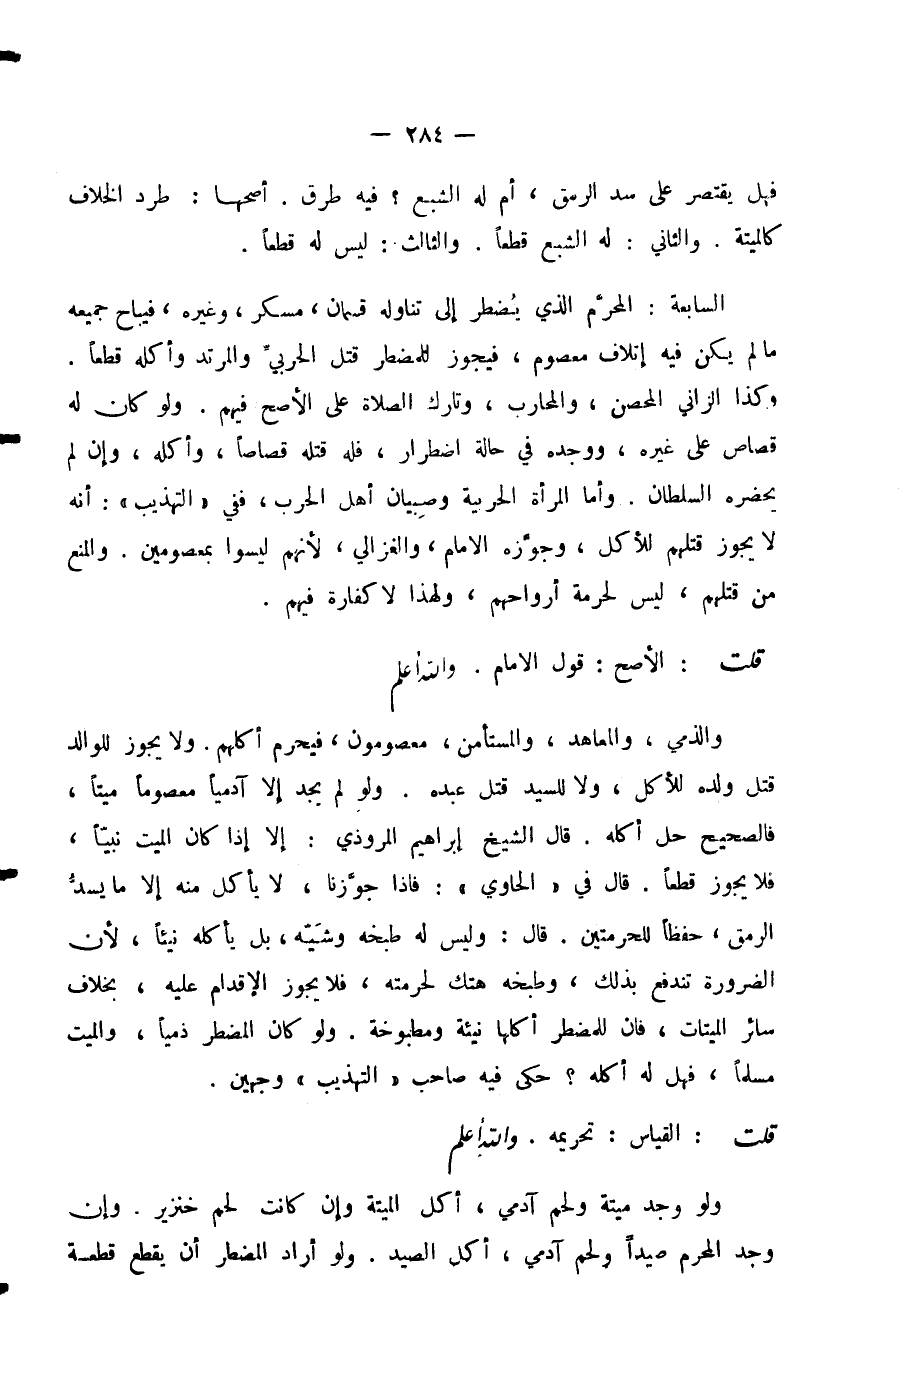 — ٢٨٤ —
فهل يقتصر على سد الرمق ، أم له الشبع ؟ فيه طرق . أصحها : طرد الخلاف
كالميتة . والثاني : له الشبع قطعاً . والثالث : ليس له قطعاً .
السابعة : المحرَّم الذي يُضطر إلى تناوله قسمان ، مسكر ، وغيره ، فيباح جميعه
مالم يكن فيه إتلاف معصوم ، فيجوز للمضطر قتل الحربيِّ والمرتد وأكله قطعاً .
وكذا الزاني المحصن ، والمحارب ، وتارك الصلاة على الأصح فيهم . ولو كان له
قصاص على غيره ، ووجده في حالة اضطرار ، فله قتله قصاصاً ، وأكله ، وإن لم
يحضره السلطان . وأما المرأة الحربية وصبيان أهل الحرب ، ففي « التهذيب » : أنه
لا يجوز قتلهم للأكل ، وجوَّزه الامام ، والغزالي ، لأنهم ليسوا بمعصومين . والمنع
من قتلهم ، ليس لحرمة أرواحهم ، ولهذا لا كفارة فيهم .
قلت : الأصح : قول الامام . والله أعلم
والذمي ، والمعاهد ، والمستأمن ، معصومون ، فيحرم أكلهم . ولا يجوز للوالد
قتل ولده للأكل ، ولا للسيد قتل عبده . ولو لم يجد إلا آدمياً معصوماً ميتاً ،
فالصحيح حل أكله . قال الشيخ إبراهيم المروذي : إلا إذا كان الميت نبيّاً ،
فلا يجوز قطعاً . قال في « الحاوي » : فاذا جوَّزنا ، لا يأكل منه إلا ما يسدُّ
الرمق ، حفظاً للحرمتين . قال : وليس له طبخه وشَيّه ، بل يأكله نيئاً ، لأن
الضرورة تندفع بذلك ، وطبخه هتك لحرمته ، فلا يجوز الإقدام عليه ، بخلاف
سائر الميتات ، فان للمضطر أكلها نيئة ومطبوخة . ولو كان المضطر ذمياً ، والميت
مسلماً ، فهل له أكله ؟ حكى فيه صاحب « التهذيب » وجهين .
قلت : القياس : تحريمه . والله أعلم
ولو وجد ميتة ولحم آدمي ، أكل الميتة وإن كانت لحم خنزير . وإن
وجد المحرم صيداً ولحم آدمي ، أكل الصيد . ولو أراد المضطر أن يقطع قطعة